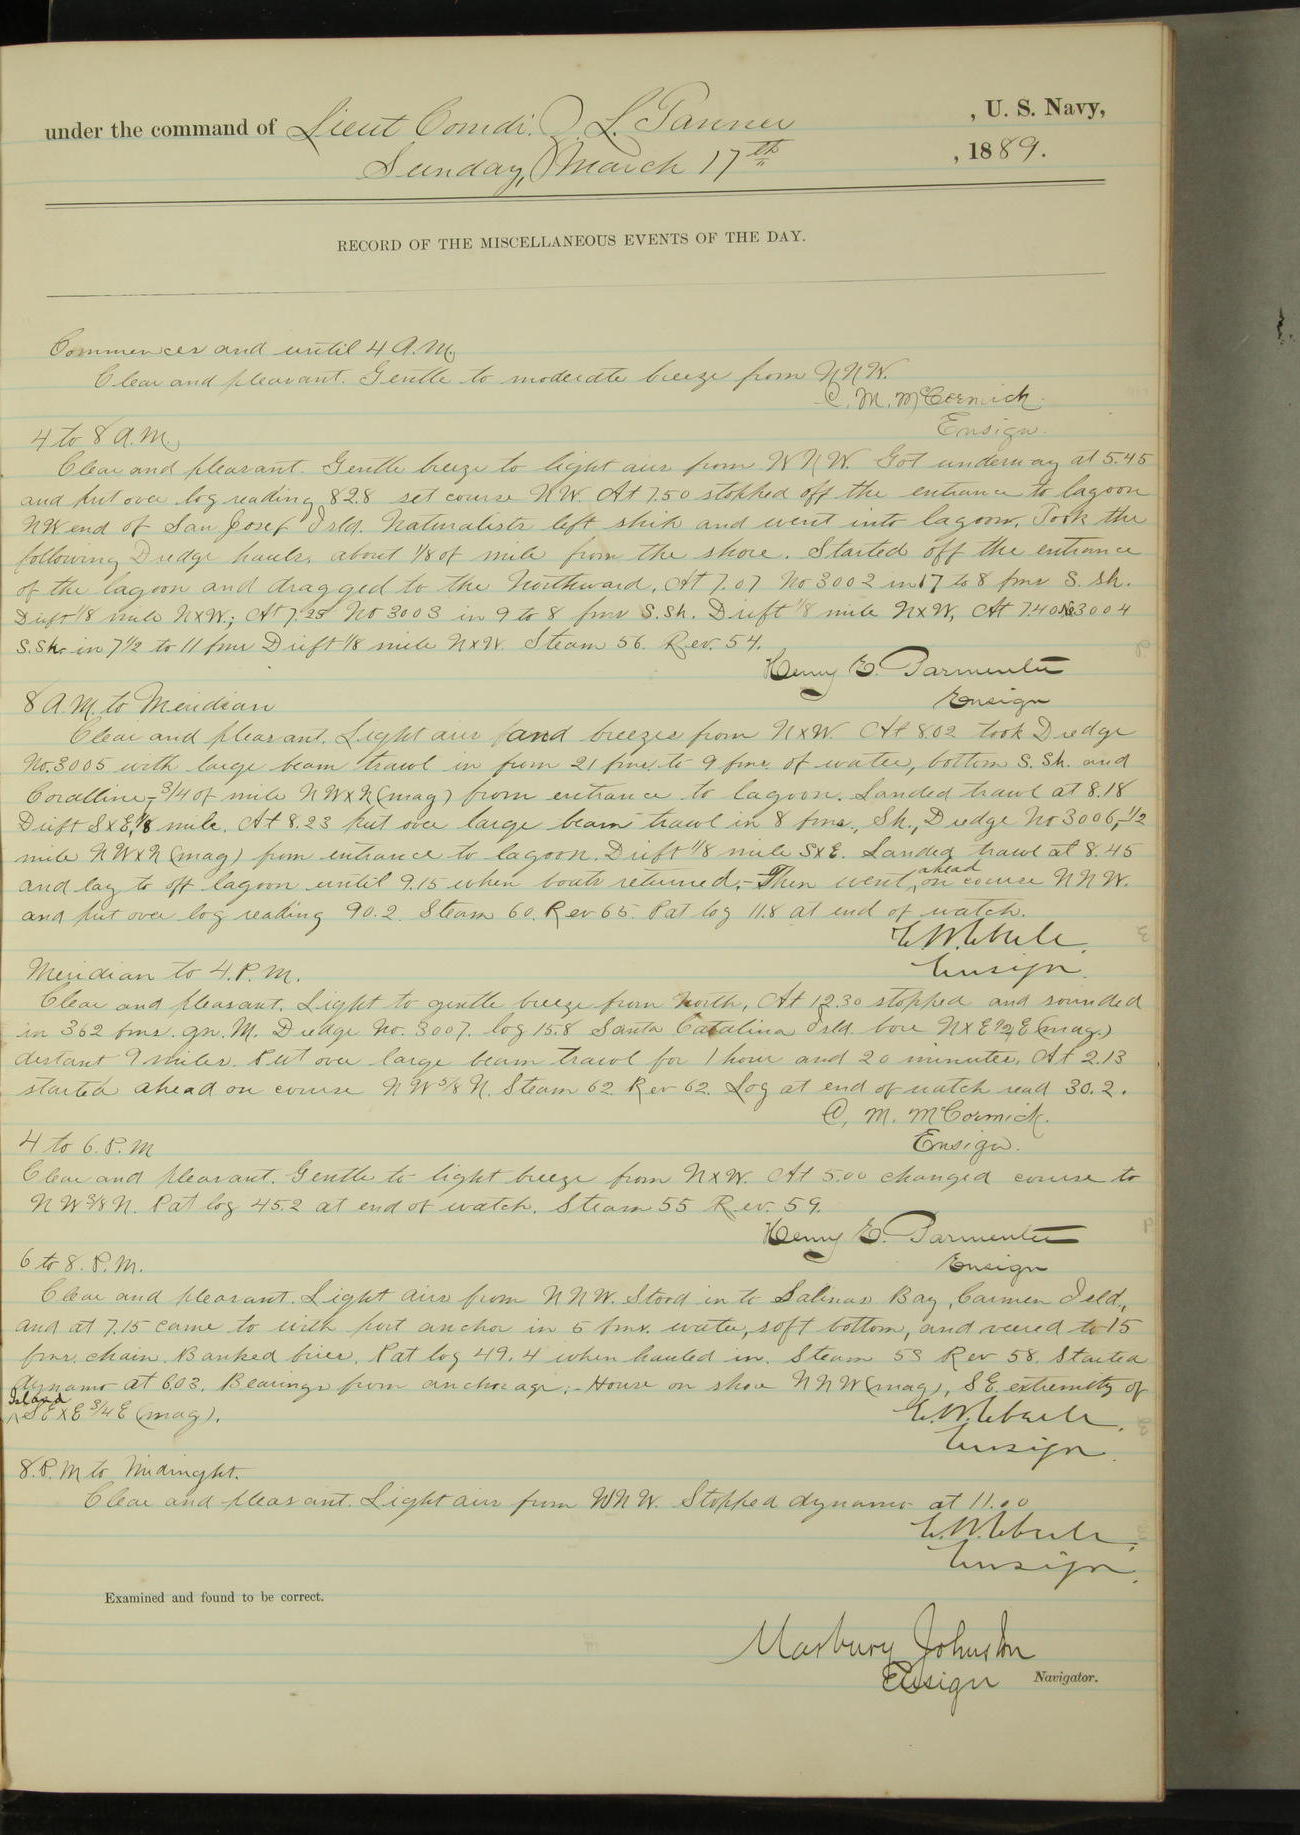 under the command of Lieut Comdr. Z. L. Tanner , U. S. Navy,
Sunday, March 17th , 1889.
RECORD OF THE MISCELLANEOUS EVENTS OF THE DAY.
Commences and until 4 A.M.
Clear and pleasant. Gentle to moderate breeze from NNW.
C. M. McCormick.
Ensign.
4 to 8 A.M.
Clear and pleasant. Gentle breeze to light airs from WNW. Got underway at 5.45
and put over log reading 82.8 set course NW. At 7.50 stopped off the entrance to lagoon
NW end of San Josef Isld. Naturalists left ship and went into lagoon. Took the
following Dredge hauls, about 1/8 of mile from the shore. Started off the entrance
of the lagoon and dragged to the Northward. At 7.07 No 3002 in 17 to 8 fms S. Sh.
Drift 1/8 mile NxW.; At 7.25 No 3003 in 9 to 8 fms S. Sh. Drift 1/8 mile NxW, At 7.40 No 3004
S. Sh. in 7 1/2 to 11 fms Drift 1/8 mile NxW. Steam 56. Rev. 54.
Henry E. Parmenter
Ensign
8 A.M. to Meridian
Clear and pleasant. Light airs and breezes from NxW. At 8.02 took Dredge
No. 3005 with large beam trawl in from 21 fms. to 9 fms. of water, bottom S. Sh. and
Coralline,- 3/4 of mile NWxN (mag) from entrance to lagoon. Landed trawl at 8.18
Drift SxE, 1/8 mile. At 8.23 put over large beam trawl in 8 fms., Sh., Dredge No 3006,- 1/2
mile NWxN (mag) from entrance to lagoon. Drift 1/8 mile SxE. Landed trawl at 8.45
and lay to off lagoon until 9.15 when boats returned.- Then went ahead on course NNW.
and put over log reading 90.2. Steam 60. Rev 65. Pat log 11.8 at end of watch.
E. W. Eberle.
Ensign.
Meridian to 4. P.M.
Clear and pleasant. Light to gentle breeze from North. At 12.30 stopped and sounded
in 362 fms. gn. M. Dredge No. 3007. log 15.8 Santa Catalina Isld bore NxE 1/2 E (mag.)
distant 9 miles. Put over large beam trawl for 1 hour and 20 minutes. At 2.13
started ahead on course NW 5/8 N. Steam 62. Rev 62. Log at end of watch read 30.2.
C. M. McCormick.
Ensign.
4 to 6. P.M
Clear and pleasant. Gentle to light breeze from NxW. At 5.00 changed course to
NW 3/8 N. Pat log 45.2 at end of watch. Steam 55 Rev. 59.
Henry E. Parmenter
Ensign
6 to 8. P.M.
Clear and pleasant. Light airs from NNW. Stood in to Salinas Bay, Carmen Isld.,
and at 7.15 came to with port anchor in 5 fms. water, soft bottom, and veered to 15
fms. chain. Banked fires. Pat log 49.4 when hauled in. Steam 53 Rev 58. Started
dynamo at 6.03. Bearings from anchorage:- House on shore NNW (mag), S.E. extremity of
Island SExE 3/4 E (mag).
E. W. Eberle.
Ensign.
8. P.M to Midnight.
Clear and pleasant. Light airs from WNW. Stopped dynamo at 11.00
E. W. Eberle.
Ensign.
Examined and found to be correct.
Marbury Johnston
Ensign Navigator.